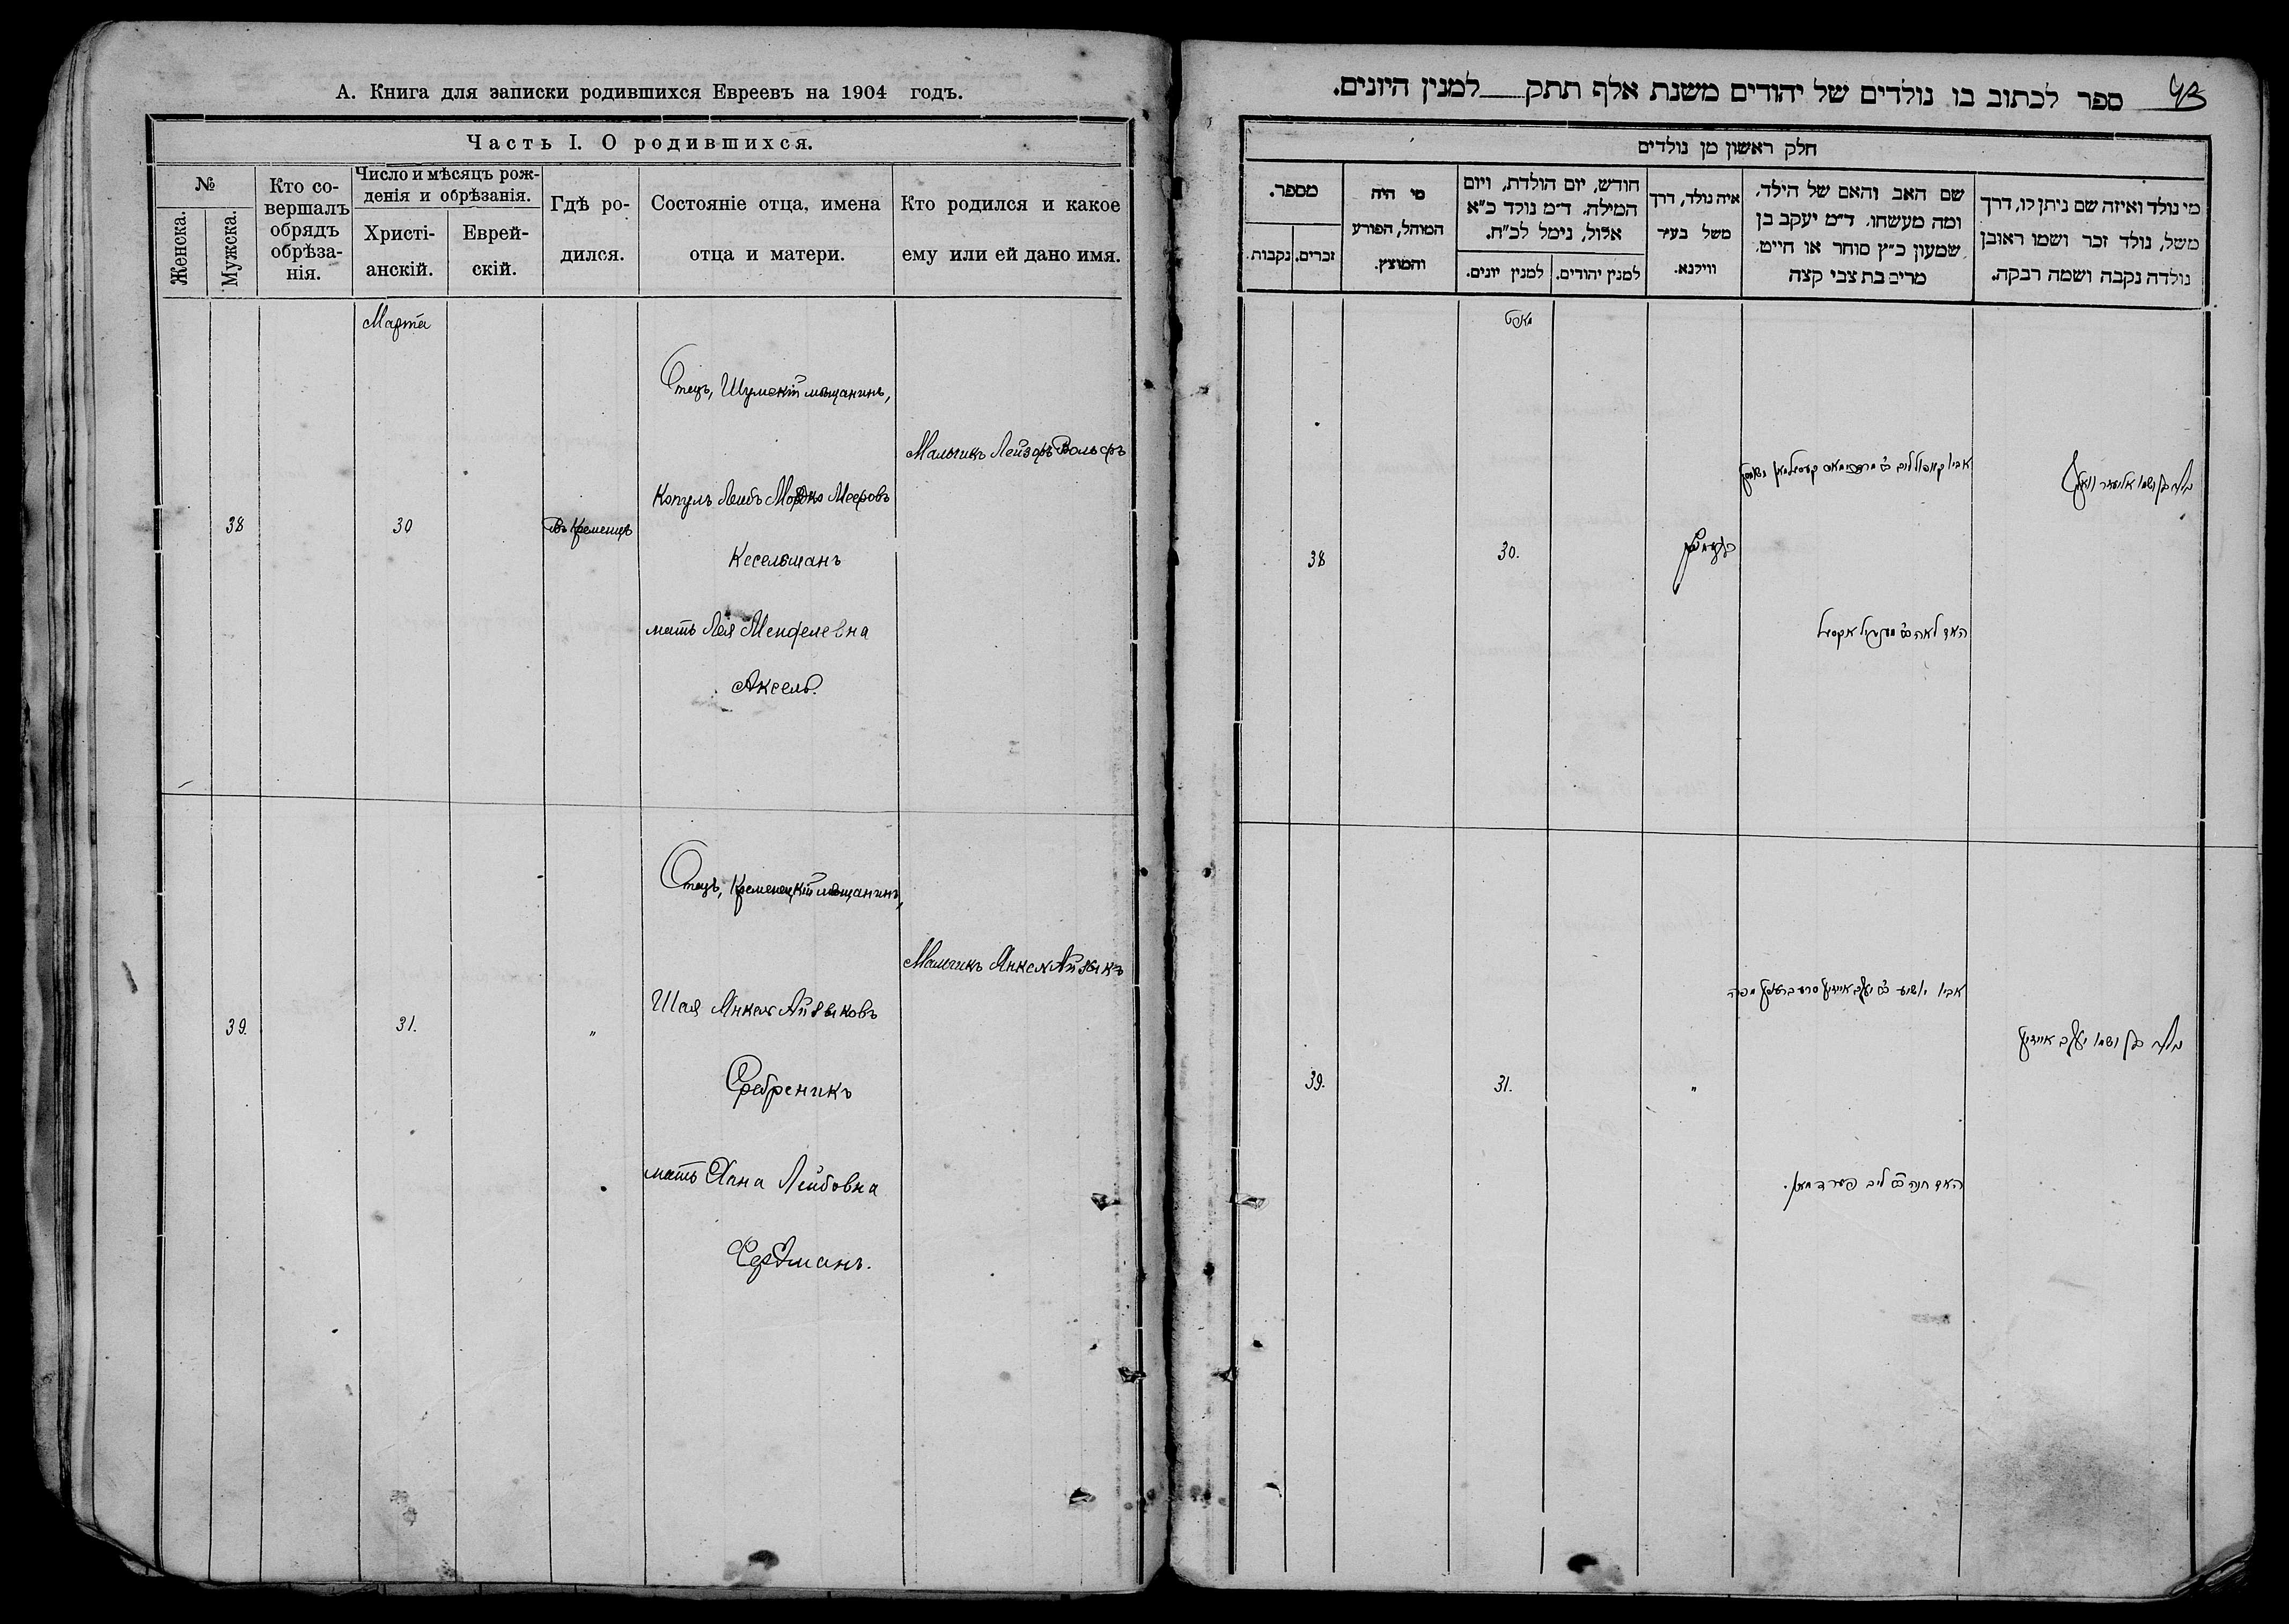 А. Книга для записки родившихся Евреевъ на 1904 годъ.
Часть I. О родившихся.
№
Женска.
Мужска.
Кто со-
вершалъ
обрядъ
обрѣза-
нія.
Число и мѣсяцъ рож-
денія и обрѣзанія.
Христі-
анскій.
Еврей-
скій.
Гдѣ ро-
дился.
Состояніе отца, имена
отца и матери.
Кто родился и какое
ему или ей дано имя.
Марта
38
30
въ Кременцѣ
Отецъ, Шумскій мѣщанинъ,
Копулъ Лейбъ Мордко Мееровъ
Кесельманъ
мать Лея Менделевна
Аксель.
Мальчикъ Лейзоръ Вольфъ
39.
31.
"
Отецъ, Кременецкій мѣщанинъ,
Шая Янкель Айзиковъ
Сребреникъ
мать Хана Лейбовна
Фердманъ.
Мальчикъ Янкель Айзикъ
43
ספר לכתוב בו נולדים של יהודים משנת אלף תתק למנין היונים.
חלק ראשון מן נולדים
מי נולד ואיזה שם ניתן לו, דרך
משל, נולד זכר ושמו ראובן
נולדה נקבה ושמה רבקה.
שם האב והאם של הילד,
ומה מעשהו. ד"מ יעקב בן
שמעון כ"ץ סוחר או חייט,
מרים בת צבי קצה
איה נולד, דרך
משל בעיר
ווילנא.
חודש, יום הולדת, ויום
המילה. ד"מ נולד כ"א
אלול, נימל לכ"ח.
למנין יהודים.
למנין יונים.
מי היה
המוהל, הפורע
והמוצץ.
מספר.
זכרים.
נקבות.
מארט
נולד בן ושמו אליעזר וואלף
האם לאה בת מענדיל אקסעל
30.
38
נולד בן ושמו יעקב אייזיק
האם חנה בת ליב פערדמאן.
"
31.
39.